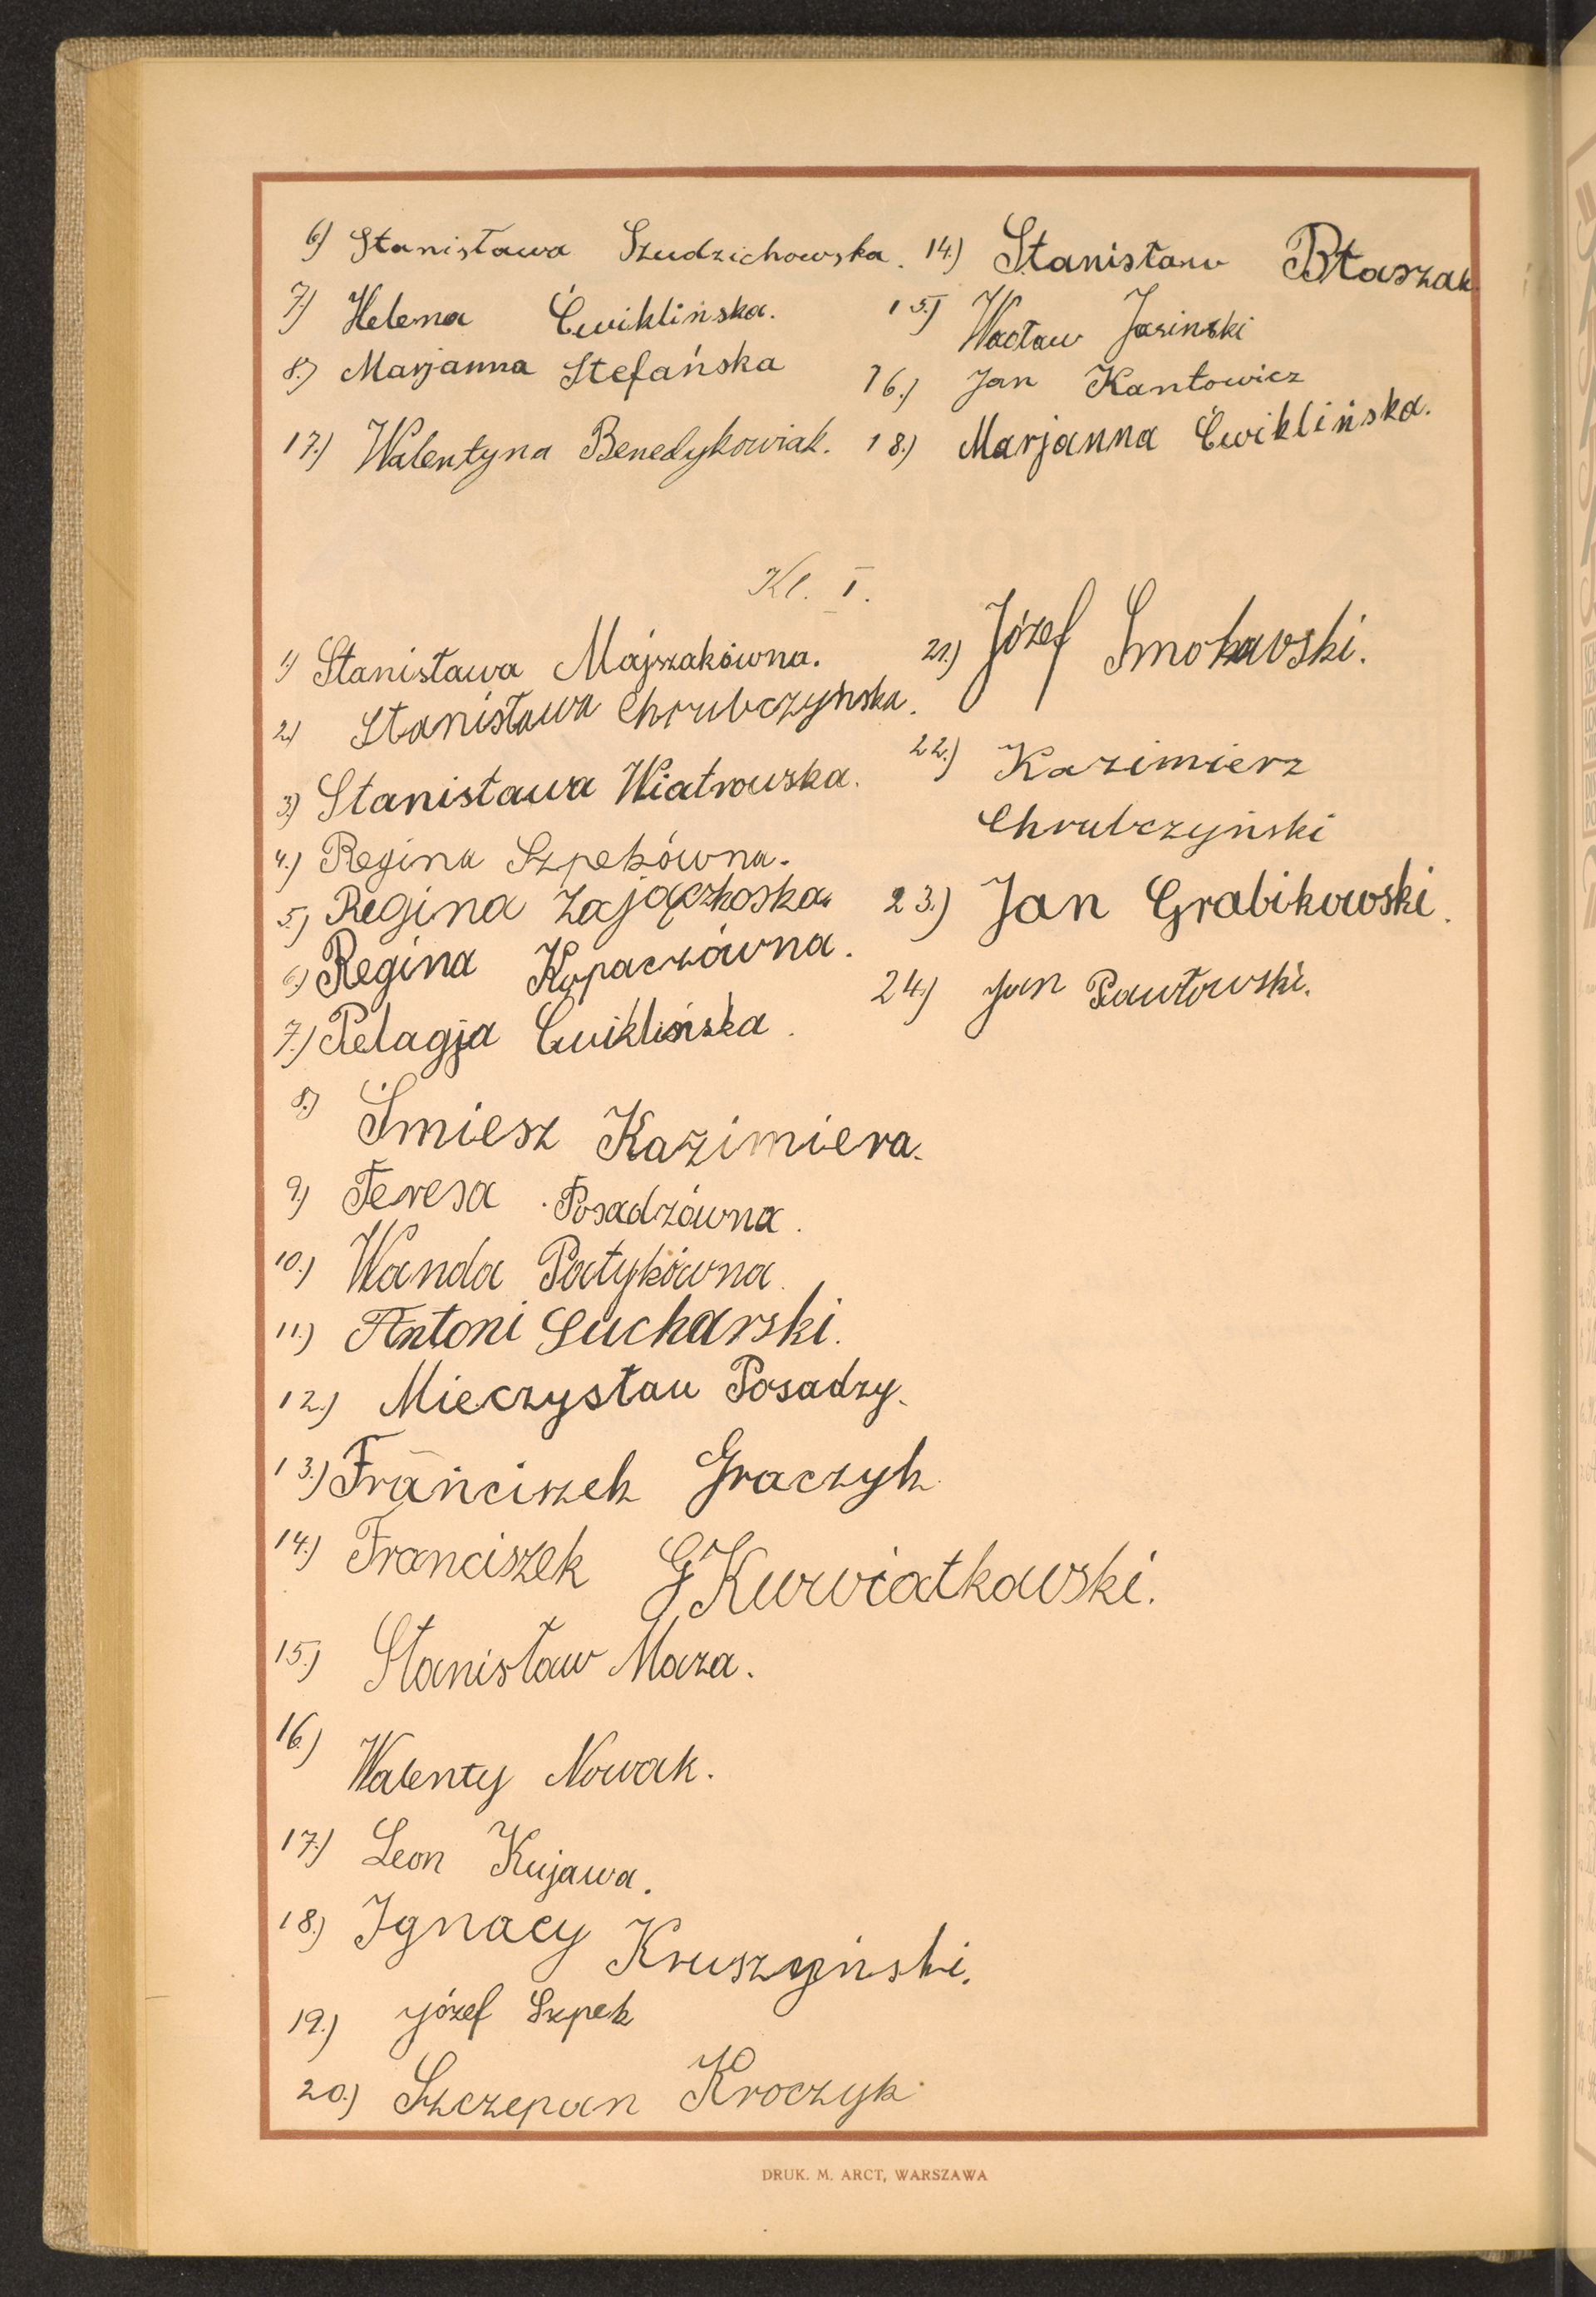 6) Stanisława Szudzichowska.
7) Helena Ćwiklińska.
8.) Marjanna Stefańska
17.) Walentyna Benedykowiak.
14.) Stanisław Błaszak.
15.) Wacław Jasinski
16.) Jan Kantowicz
18.) Marjanna Ćwiklińska.
Kl. I.
1.) Stanisława Majszakówna.
2.) Stanisława Chrubczyńska.
3.) Stanisława Wiatrowska.
4.) Regina Szpekówna.
5.) Regina Zajączkoska.
6.) Regina Kopaczówna.
7.) Pelagja Cwiklińska.
8.) Śmiesz Kazimiera.
9.) Teresa Posadzówna.
10.) Wanda Patykówna.
11.) Antoni Sucharski.
12.) Mieczysłau Posadzy.
13.) Franciszek Graczyk.
14.) Franciszek G Kurwiatkowski.
15.) Stanisław Maza.
16.) Walenty Nowak.
17.) Leon Kujawa.
18.) Ignacy Kruszyński.
19.) Józef Szpek
20.) Szczepan Kroczyk.
21.) Józef Smokowski.
22.) Kazimierz
Chrubczyński
23.) Jan Grabikowski.
24.) Jan Pawłowski.
DRUK. M. ARCT, WARSZAWA